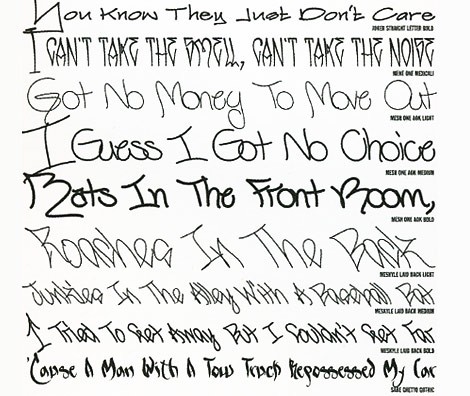 You Know They Just Don't Care
JOKER STRAIGHT LETTER BOLD
I CAN'T TAKE THE SMELL, CAN'T TAKE THE NOISE
MIENE ONE MEDICALI
Got No Money To Move Out
MESH ONE AOK LIGHT
I Guess I Got No Choice
MESH ONE AOK MEDIUM
Rats In The Front Room,
MESH ONE AOK BOLD
Roaches In The Back
MESKYLE LAID BACK LIGHT
Junkies In The Alley With A Baseball Bat
MESKYLE LAID BACK MEDIUM
I Tried To Get Away But I Couldn't Get Far
MESKYLE LAID BACK BOLD
'Cause A Man With A Tow Truck Repossessed My Car
SABE GHETTO GOTHIC